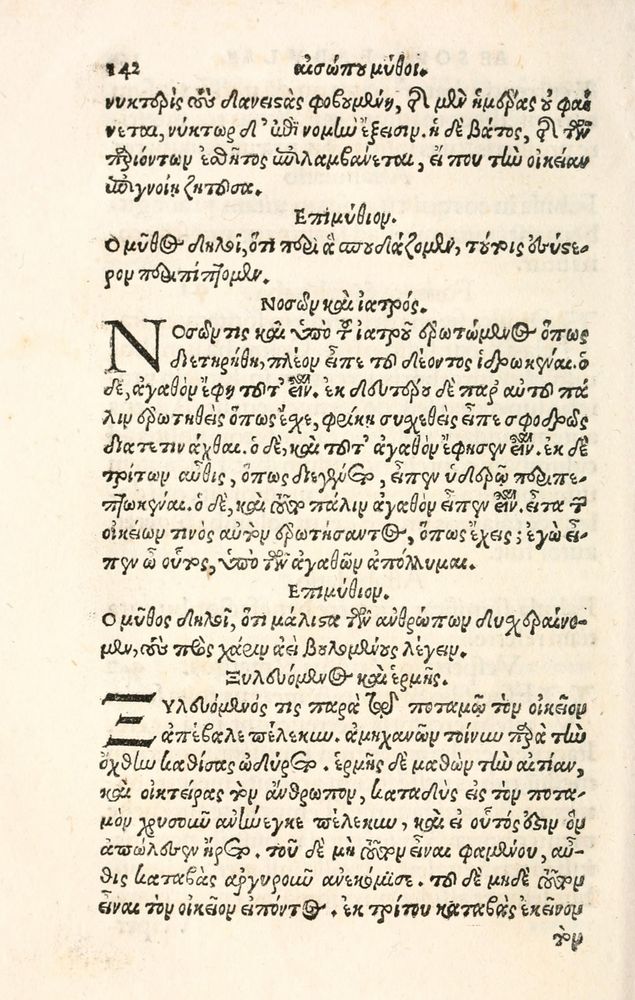 142 αἰσώπου μῦθοι.
νυκτερὶς τοὺς δανειστὰς φοβουμένη, διὰ μὲν ἡμέρας οὐ φαί
νεται, νύκτωρ δ' ἐπὶ νομὴν ἔξεισιν. ἡ δὲ βάτος, διὰ τῶν
παριόντων ἐσθῆτος ἐπιλαμβάνεται, εἴ που τὴν οἰκείαν
ἐπιγνοίη ζητοῦσα.
Επιμύθιον.
Ο μῦθος δηλοῖ, ὅτι περὶ ἃ σπουδάζομεν, τούτοις ἐς ὕστε-
ρον περιπίπτομεν.
Νοσῶν καὶ ἰατρός.
Νοσῶν τις καὶ ὑπὸ τοῦ ἰατροῦ ἐρωτώμενος ὅπως
διετηρήθη, πλέον εἶπε τοῦ δέοντος ἱδρωκέναι. ὁ
δὲ, ἀγαθὸν ἔφη τοῦτ' εἶναι. ἐκ δευτέρου δὲ παρ' αὐτοῦ πά
λιν ἐρωτηθεὶς ὅπως ἔχοι, φρίκῃ συσχεθεὶς εἶπε σφοδρῶς
διατετινάχθαι. ὁ δὲ, καὶ τοῦτ' ἀγαθὸν ἔφησεν εἶναι. ἐκ δὲ
τρίτων αὖθις, ὅπως διεγένετο, εἶπεν ὑδέρῳ περιπε-
πτωκέναι. ὁ δὲ, καὶ τοῦτο πάλιν ἀγαθὸν εἶπεν εἶναι. εἶτα τῶν
οἰκείων τινὸς αὐτὸν ἐρωτήσαντος, ὅπως ἔχεις; ἐγὼ εἶ-
πεν ὦ οὗτος, ὑπὸ τῶν ἀγαθῶν ἀπόλλυμαι.
Επιμύθιον.
Ο μῦθος δηλοῖ, ὅτι μάλιστα τῶν ἀνθρώπων δυσχεραίνο-
μεν, τοὺς πρὸς χάριν ἀεὶ βουλομένους λέγειν.
Ξυλευόμενος καὶ ἑρμῆς.
Ξυλευόμενός τις παρά τινι ποταμῷ τὸν οἰκεῖον
ἀπέβαλε πέλεκυν. ἀμηχανῶν τοίνυν παρὰ τὴν
ὄχθην καθίσας ὠδύρετο. ἑρμῆς δὲ μαθὼν τὴν αἰτίαν,
καὶ οἰκτείρας τὸν ἄνθρωπον, καταδὺς εἰς τὸν ποτα-
μὸν χρυσοῦν ἀνήνεγκε πέλεκυν, καὶ εἰ οὗτός ἐστιν ὃν
ἀπώλεσεν ἤρετο. τοῦ δὲ μὴ τοῦτον εἶναι φαμένου, αὖ-
θις καταβὰς ἀργυροῦν ἀνεκόμισε. τοῦ δὲ μηδὲ τοῦτον
εἶναι τὸν οἰκεῖον εἰπόντος. ἐκ τρίτου καταβὰς ἐκεῖνον
τὸν